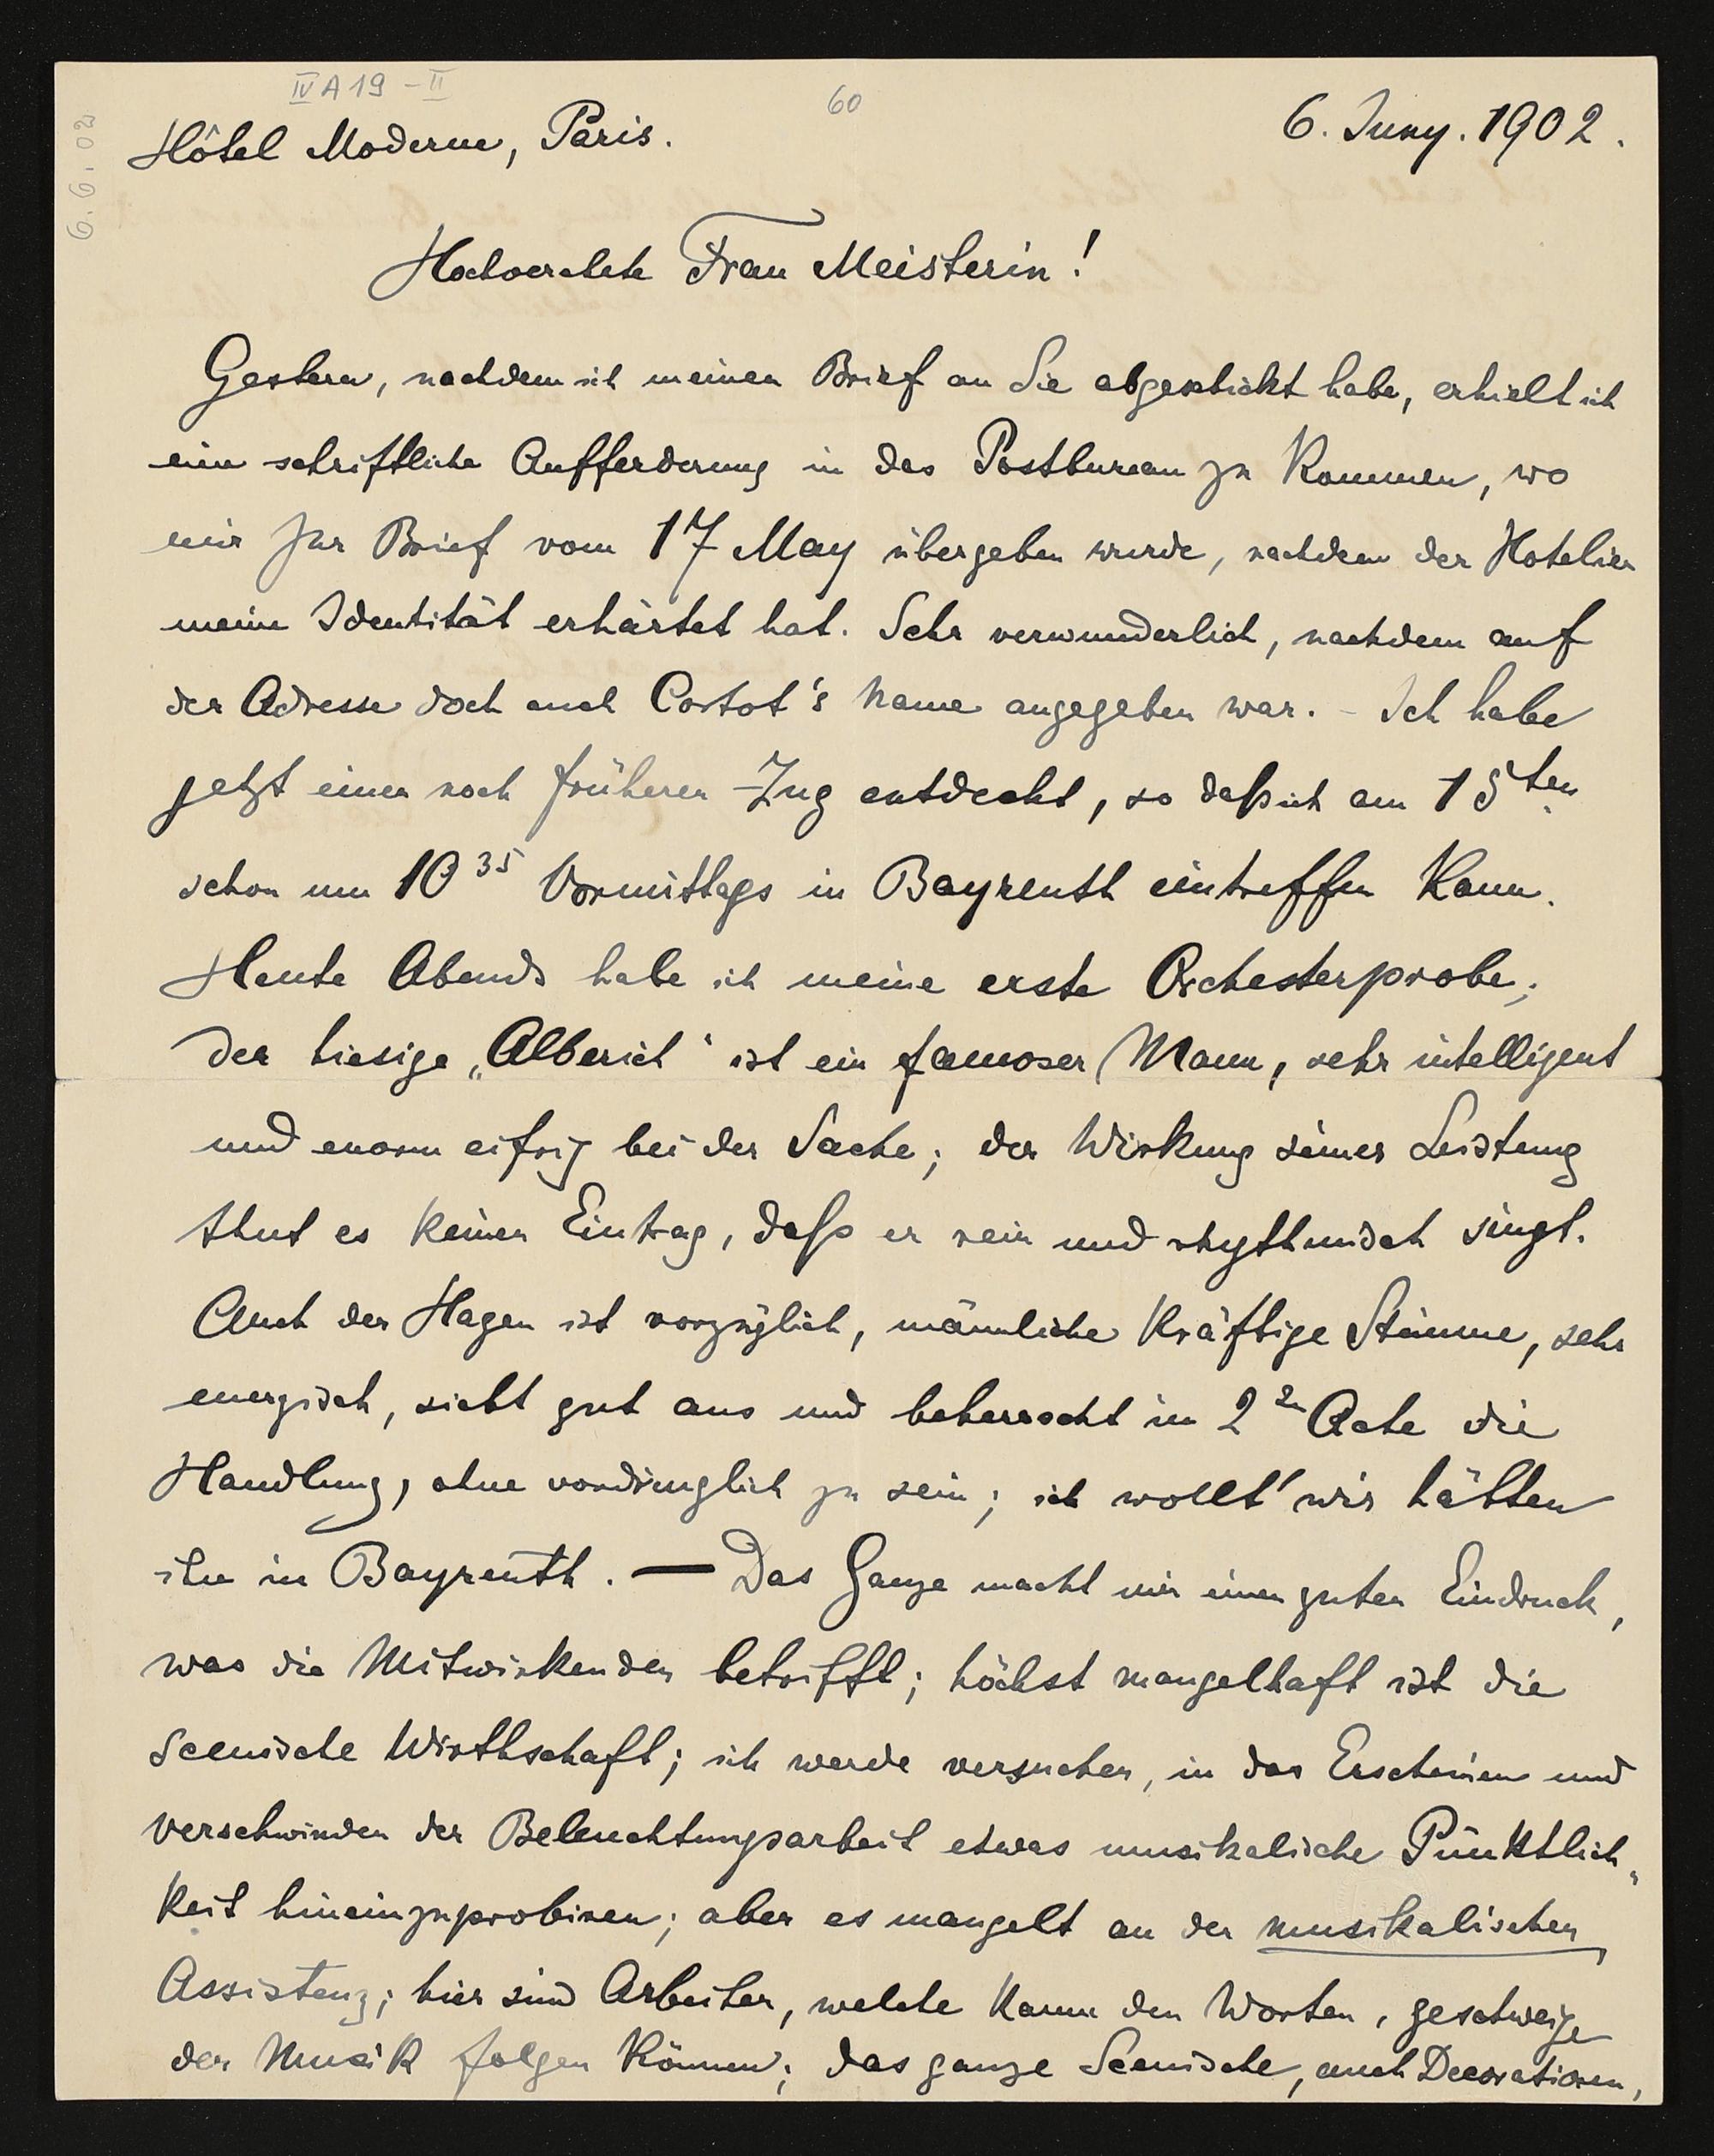 IV A 19 - II
60
6.6.02
Hôtel Moderne, Paris.
6. Juny. 1902.
Hochverehrte Frau Meisterin!
Gestern, nachdem ich meinen Brief an Sie abgeschickt habe, erhielt ich
eine schriftliche Aufforderung in das Postbureau zu kommen, wo
mir Ihr Brief vom 17 May übergeben wurde, nachdem der Hotelier
meine Identität erhärtet hat. Sehr verwunderlich, nachdem auf
der Adresse doch auch Cortot's Name angegeben war. - Ich habe
jetzt einen noch früheren Zug entdeckt, so daß ich am 15ten
schon um 10 35 Vormittags in Bayreuth eintreffen kann.
Heute Abends habe ich meine erste Orchesterprobe;
der hiesige „Alberich" ist ein famoser Mann, sehr intelligent
und enorm eifrig bei der Sache; der Wirkung seiner Leistung
thut es keinen Eintrag, daß er rein und rhythmisch singt.
Auch der Hagen ist vorzüglich, männliche kräftige Stimme, sehr
energisch, sieht gut aus und beherrscht im 2 2n Acte die
Handlung, ohne vordringlich zu sein; ich wollt' wir hätten
ihn in Bayreuth. — Das Ganze macht mir einen guten Eindruck,
was die Mitwirkenden betrifft; höchst mangelhaft ist die
scenische Wirthschaft; ich werde versuchen, in das Erscheinen und
Verschwinden der Beleuchtungsarbeit etwas musikalische Pünktlich-
keit hineinzuprobiren; aber es mangelt an der musikalischen
Assistenz; hier sind Arbeiter, welche kaum den Worten, geschweige
der Musik folgen können; das ganze Scenische, auch Decorationen,